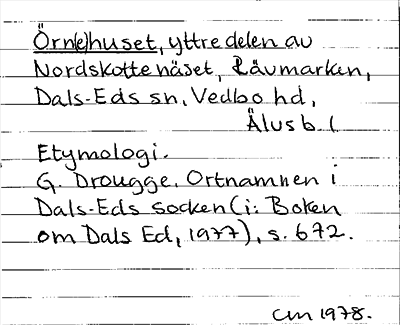 Örn(e)huset, yttre delen av
Nordskottenäset, Rävmarken,
Dals-Eds sn, Vedbo hd,
Älvsb. l
Etymologi.
G. Drougge. Ortnamnen i
Dals-Eds socken (i: Boken
om Dals Ed, 1977), s. 672.
CM 1978.